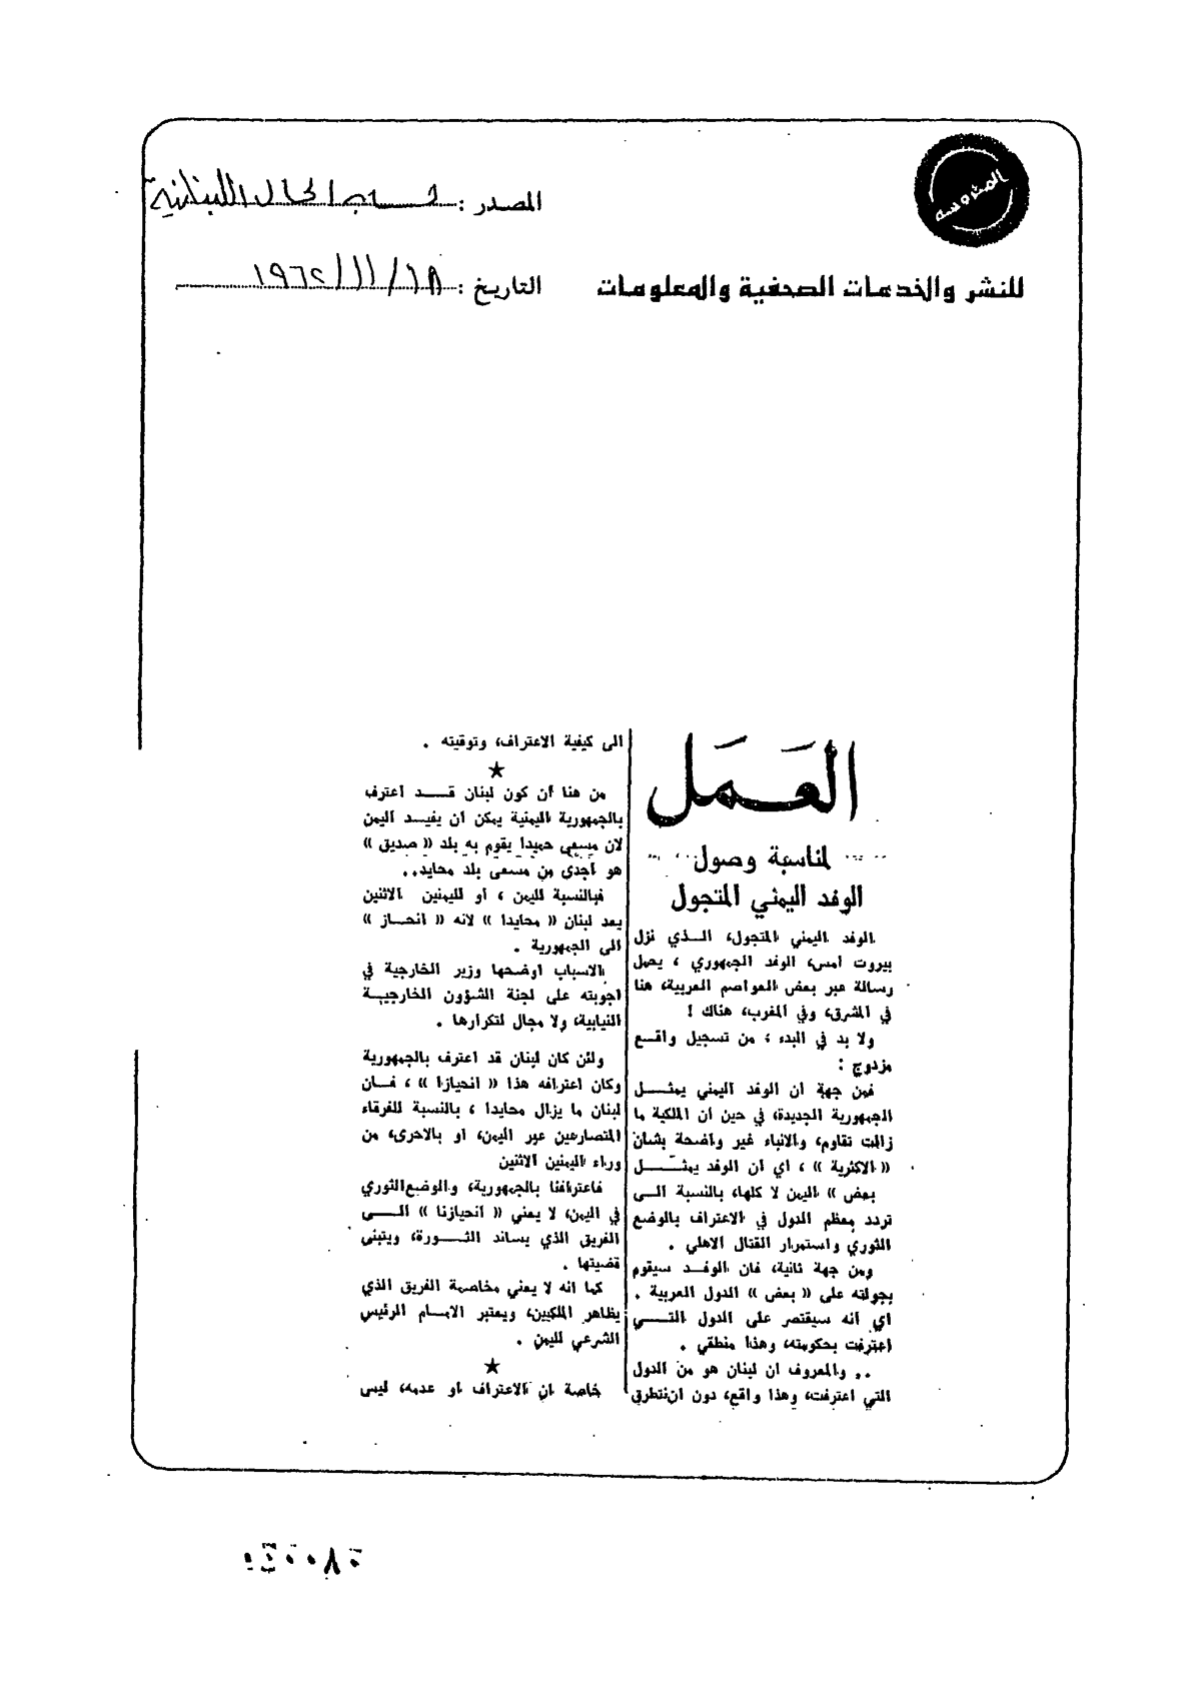 المحروسه
المصدر : حسب الحال اللبنانية
للنشر والخدمات الصحفية والمعلومات
التاريخ : ١٩٦٢/١١/١٨
العمل
لمناسبة وصول
الوفد اليمني المتجول
الوفد اليمني المتجول، الذي نزل
بيروت امس، الوفد الجمهوري ، يحمل
رسالة عبر بعض العواصم العربية، هنا
في المشرق، وفي المغرب، هناك !
ولا بد في البدء ، من تسجيل واقع
مزدوج :
فمن جهة ان الوفد اليمني يمثل
الجمهورية الجديدة، في حين ان الملكية ما
زالت تقاوم، والانباء غير واضحة بشان
« الاكثرية » ، اي ان الوفد يمثل
بعض » اليمن لا كلها، بالنسبة الى
تردد معظم الدول في الاعتراف بالوضع
الثوري واستمرار القتال الاهلي .
ومن جهة ثانية، فان الوفد سيقوم
بجولته على « بعض » الدول العربية .
اي انه سيقتصر على الدول التي
اعترفت بحكومته، وهذا منطقي .
.. والمعروف ان لبنان هو من الدول
التي اعترفت، وهذا واقع، دون ان نتطرق
الى كيفية الاعتراف، وتوقيته .
★
من هنا أن كون لبنان قد اعترف
بالجمهورية اليمنية يمكن ان يفيد اليمن
لان مسعى حميدا يقوم به بلد « صديق »
هو اجدى من مسعى بلد محايد..
فبالنسبة لليمن ، أو لليمنين الاثنين
يعد لبنان « محايدا » لانه « انحاز »
الى الجمهورية .
الاسباب اوضحها وزير الخارجية في
اجوبته على لجنة الشؤون الخارجية
النيابية، ولا مجال لتكرارها .
ولئن كان لبنان قد اعترف بالجمهورية
وكان اعترافه هذا « انحيازا » ، فان
لبنان ما يزال محايدا ، بالنسبة للفرقاء
المتصارعين عبر اليمن، او بالاحرى، من
وراء اليمنين الاثنين
فاعترافنا بالجمهورية، والوضع الثوري
في اليمن، لا يعني « انحيازنا » الى
الفريق الذي يساند الثورة، ويتبنى
قضيتها .
كما انه لا يعني مخاصمة الفريق الذي
يظاهر الملكيين، ويعتبر الامام الرئيس
الشرعي لليمن .
★
خاصة ان الاعتراف او عدمه، ليس